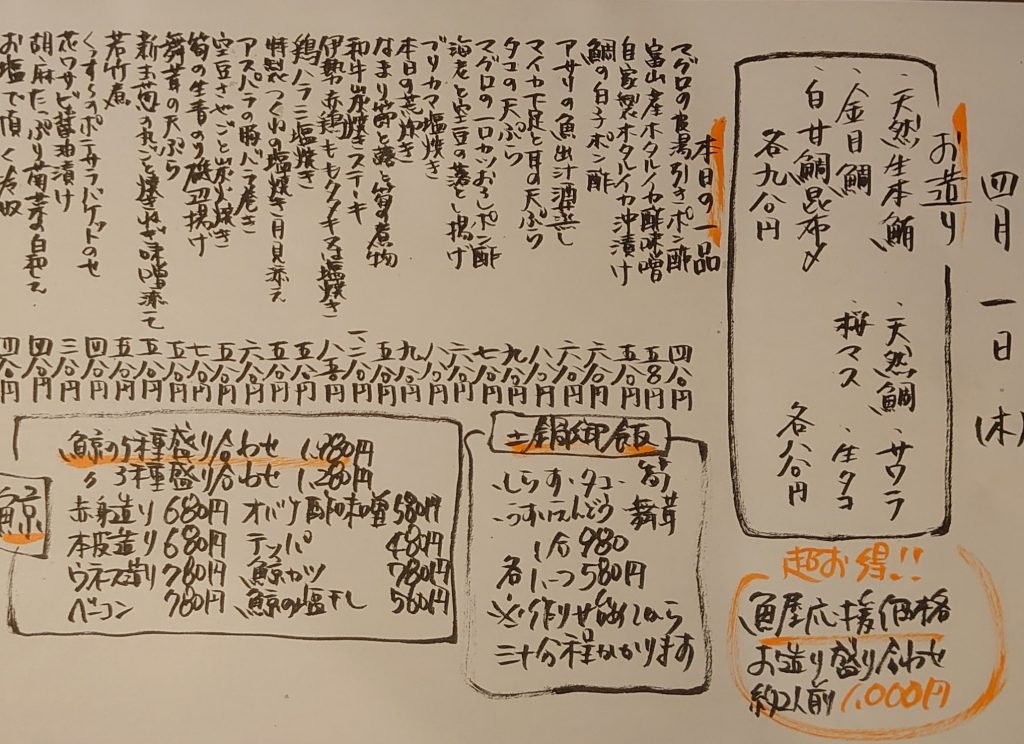 四月一日(木)
お造り
・天然生本鮪 ・天然鯛 ・サワラ
・金目鯛 ・桜マス ・生タコ
・白甘鯛昆布〆
各九八〇円 各八八〇円
本日の一品
マグロの皮湯引きポン酢 四八〇円
富山産ホタルイカ酢味噌 五八〇円
自家製ホタルイカ沖漬け 五八〇円
鯛の白子ポン酢 六八〇円
アサリの魚出汁酒蒸し 六八〇円
マイカ下足と耳の天ぷら 八八〇円
タコの天ぷら 九八〇円
マグロの一口カツおろしポン酢 七八〇円
海老と空豆の落し揚げ 六八〇円
ブリカマ塩焼き 八八〇円
本日の荒炊き 九八〇円
なまり節と蕗と筍の煮物 五八〇円
和牛炭焼きステーキ 一二八〇円
伊勢赤鶏ももタタキ又は塩焼き 八五〇円
鶏ハラミ塩焼き 五八〇円
特製つくねの塩焼き月見添え 五八〇円
アスパラの豚バラ巻き 六八〇円
空豆さやごと炭火焼き 五八〇円
筍の生青のり磯辺揚げ 七八〇円
舞茸の天ぷら 五八〇円
新玉葱の丸ごと 味噌添え 五八〇円
若竹煮 五八〇円
ポテサラバケットのせ 四八〇円
花ワサビ醤油漬け 三八〇円
胡麻たっぷり菊菜の白和え 四八〇円
お塩で頂く冷奴 四八〇円
超お得!!
魚屋応援価格
お造り盛り合わせ
約2人前 1,000円
土鍋御飯
しらす・タコ・筍
うすいえんどう 舞茸
1合 980
各 ハーフ 580円
※炊き始めてから
三十分程かかります
鯨
鯨の5種盛り合わせ 1,980円
〃 3種盛り合わせ 1,280円
赤身造り 680円 オバケ酢味噌 580円
本皮造り 680円 テッパ 480円
ウネス造り 780円 鯨カツ 780円
ベーコン 780円 鯨の塩干し 560円